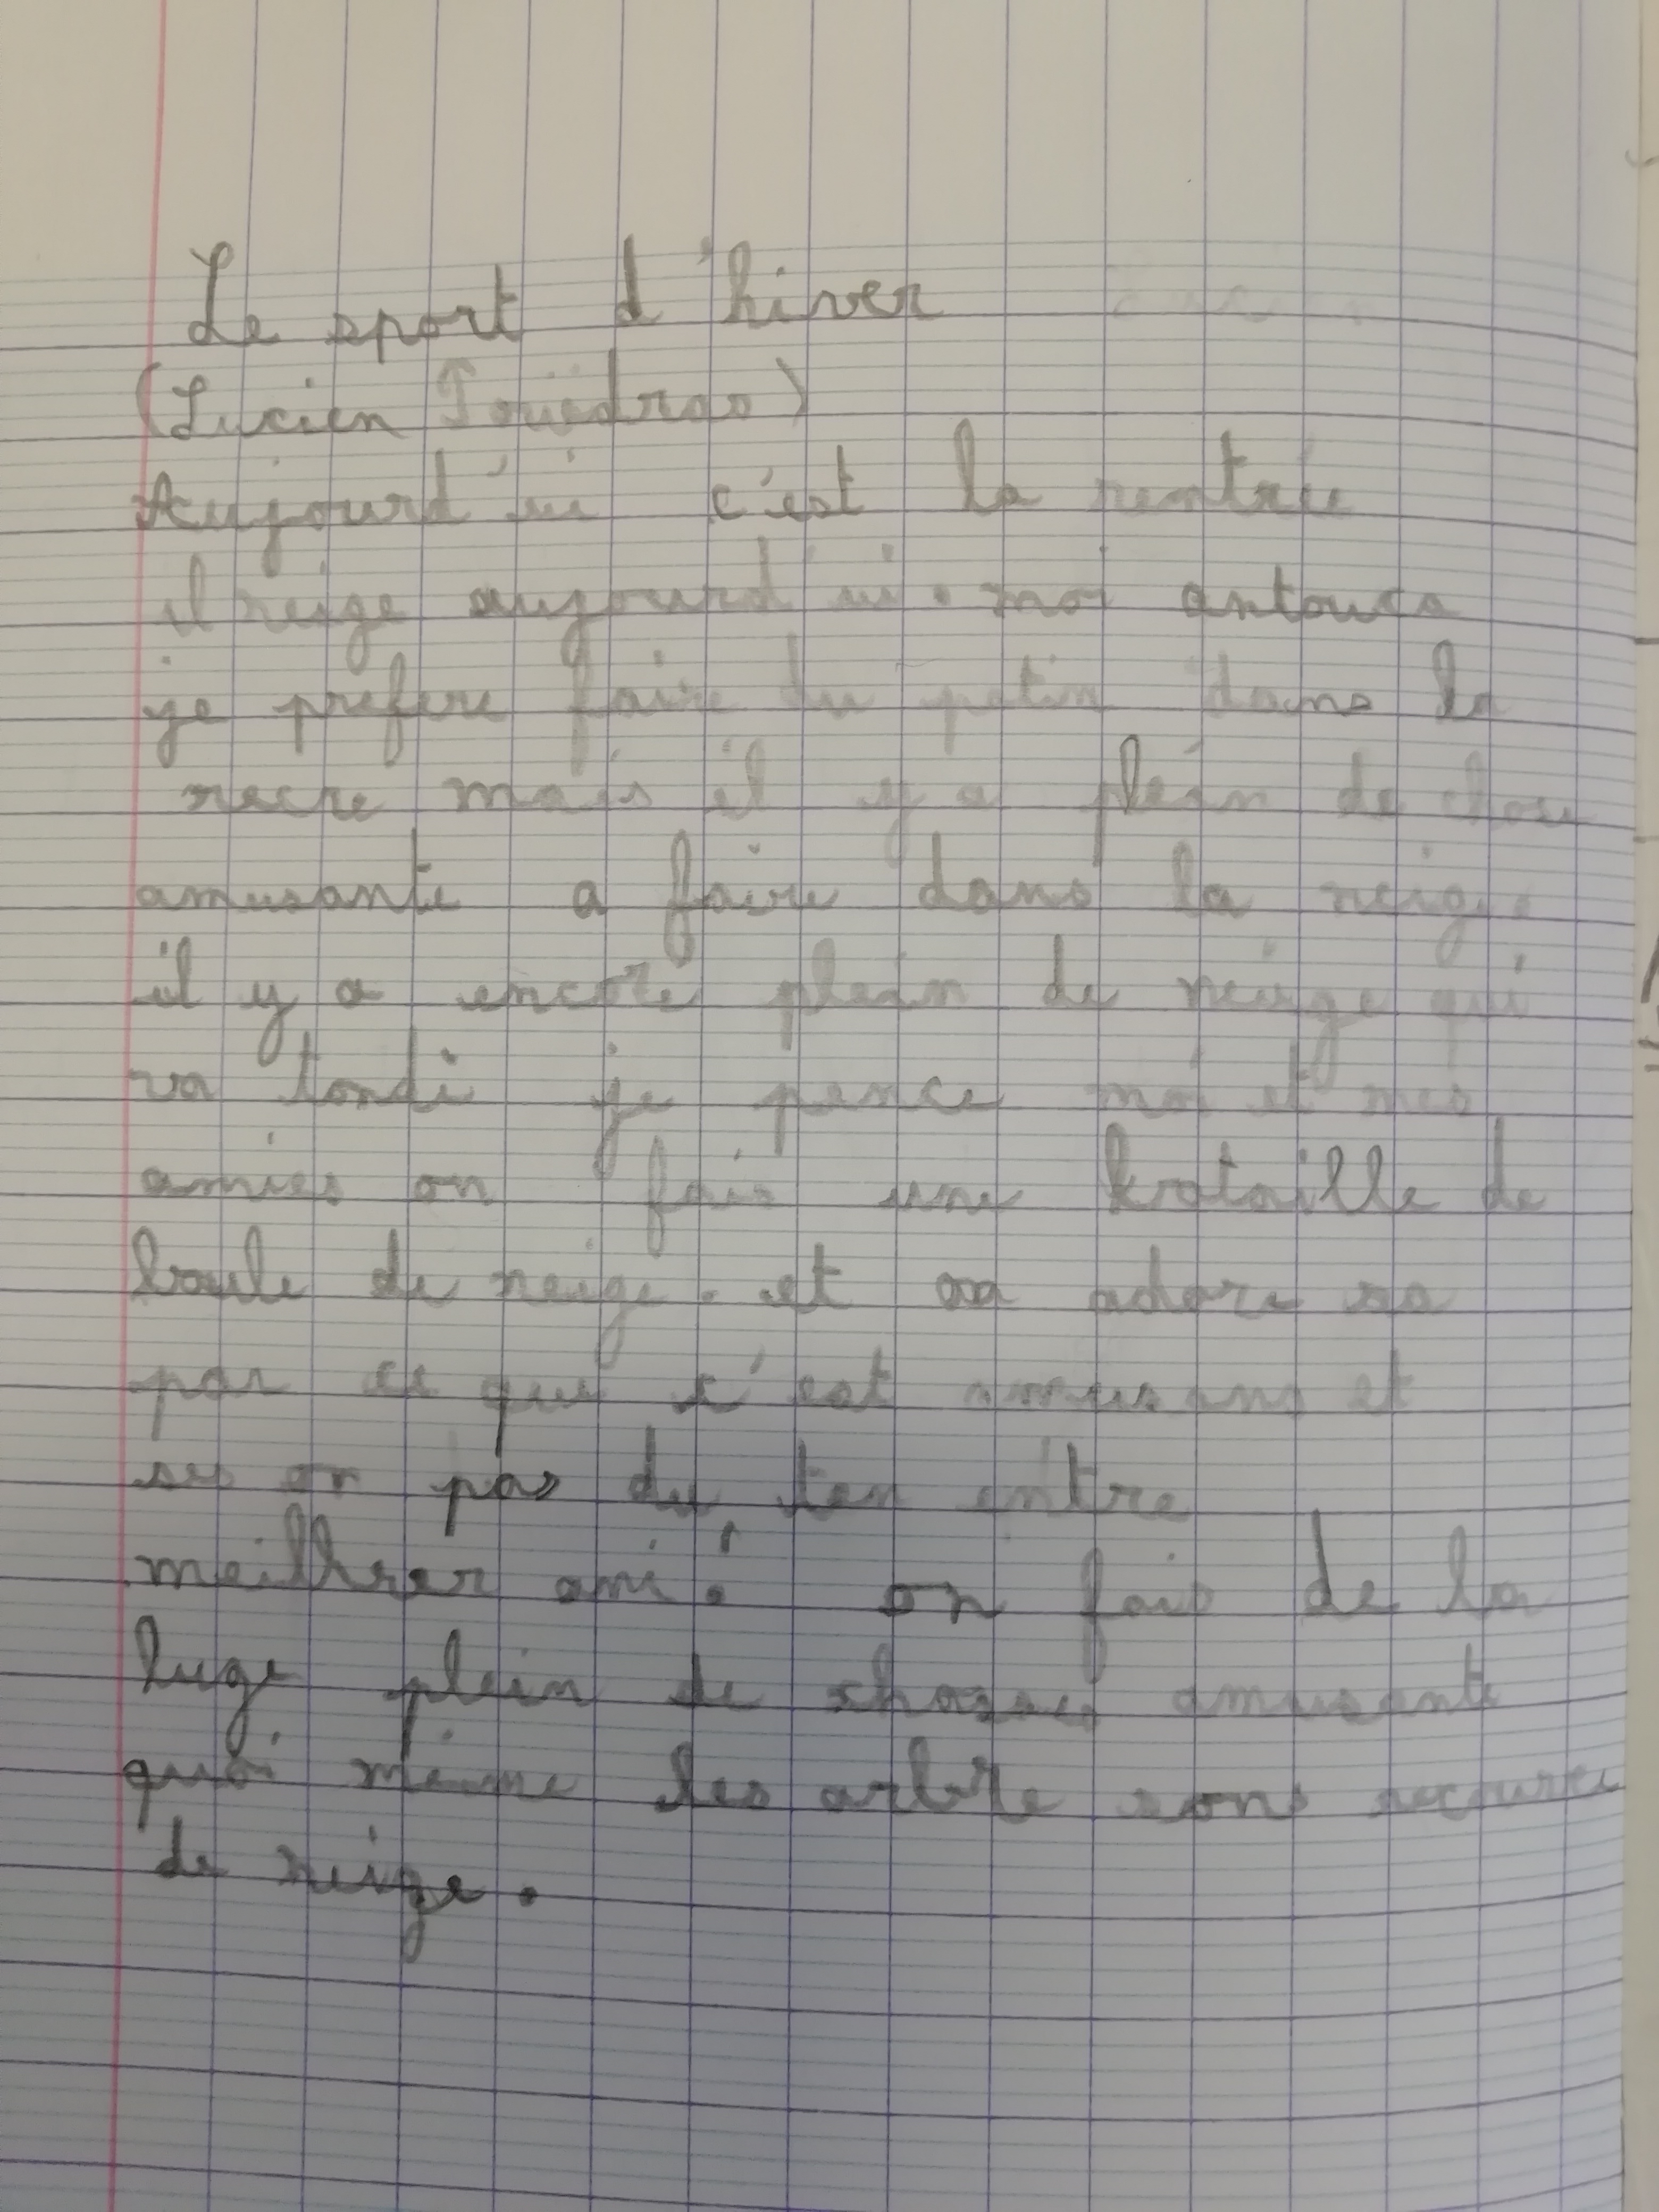 Le sport d'hiver
(Lucien
Aujourd'ui c'est la rentrée
il neige aujourd'ui. moi antouca
je prefere faire du patin dans la
recre mais il y a plein de chose
amusante a faire dans la neige.
il y a encore plein de neige qui
va tondi je pence moi et mes
amies on fais une bataille de
boule de neige. et on adore sa
par ce que c'est amusans et
on pas du ten entre
meilleer ami. on fais de la
luge plein de choses amusante
quoi même les arbre sons
de neige.